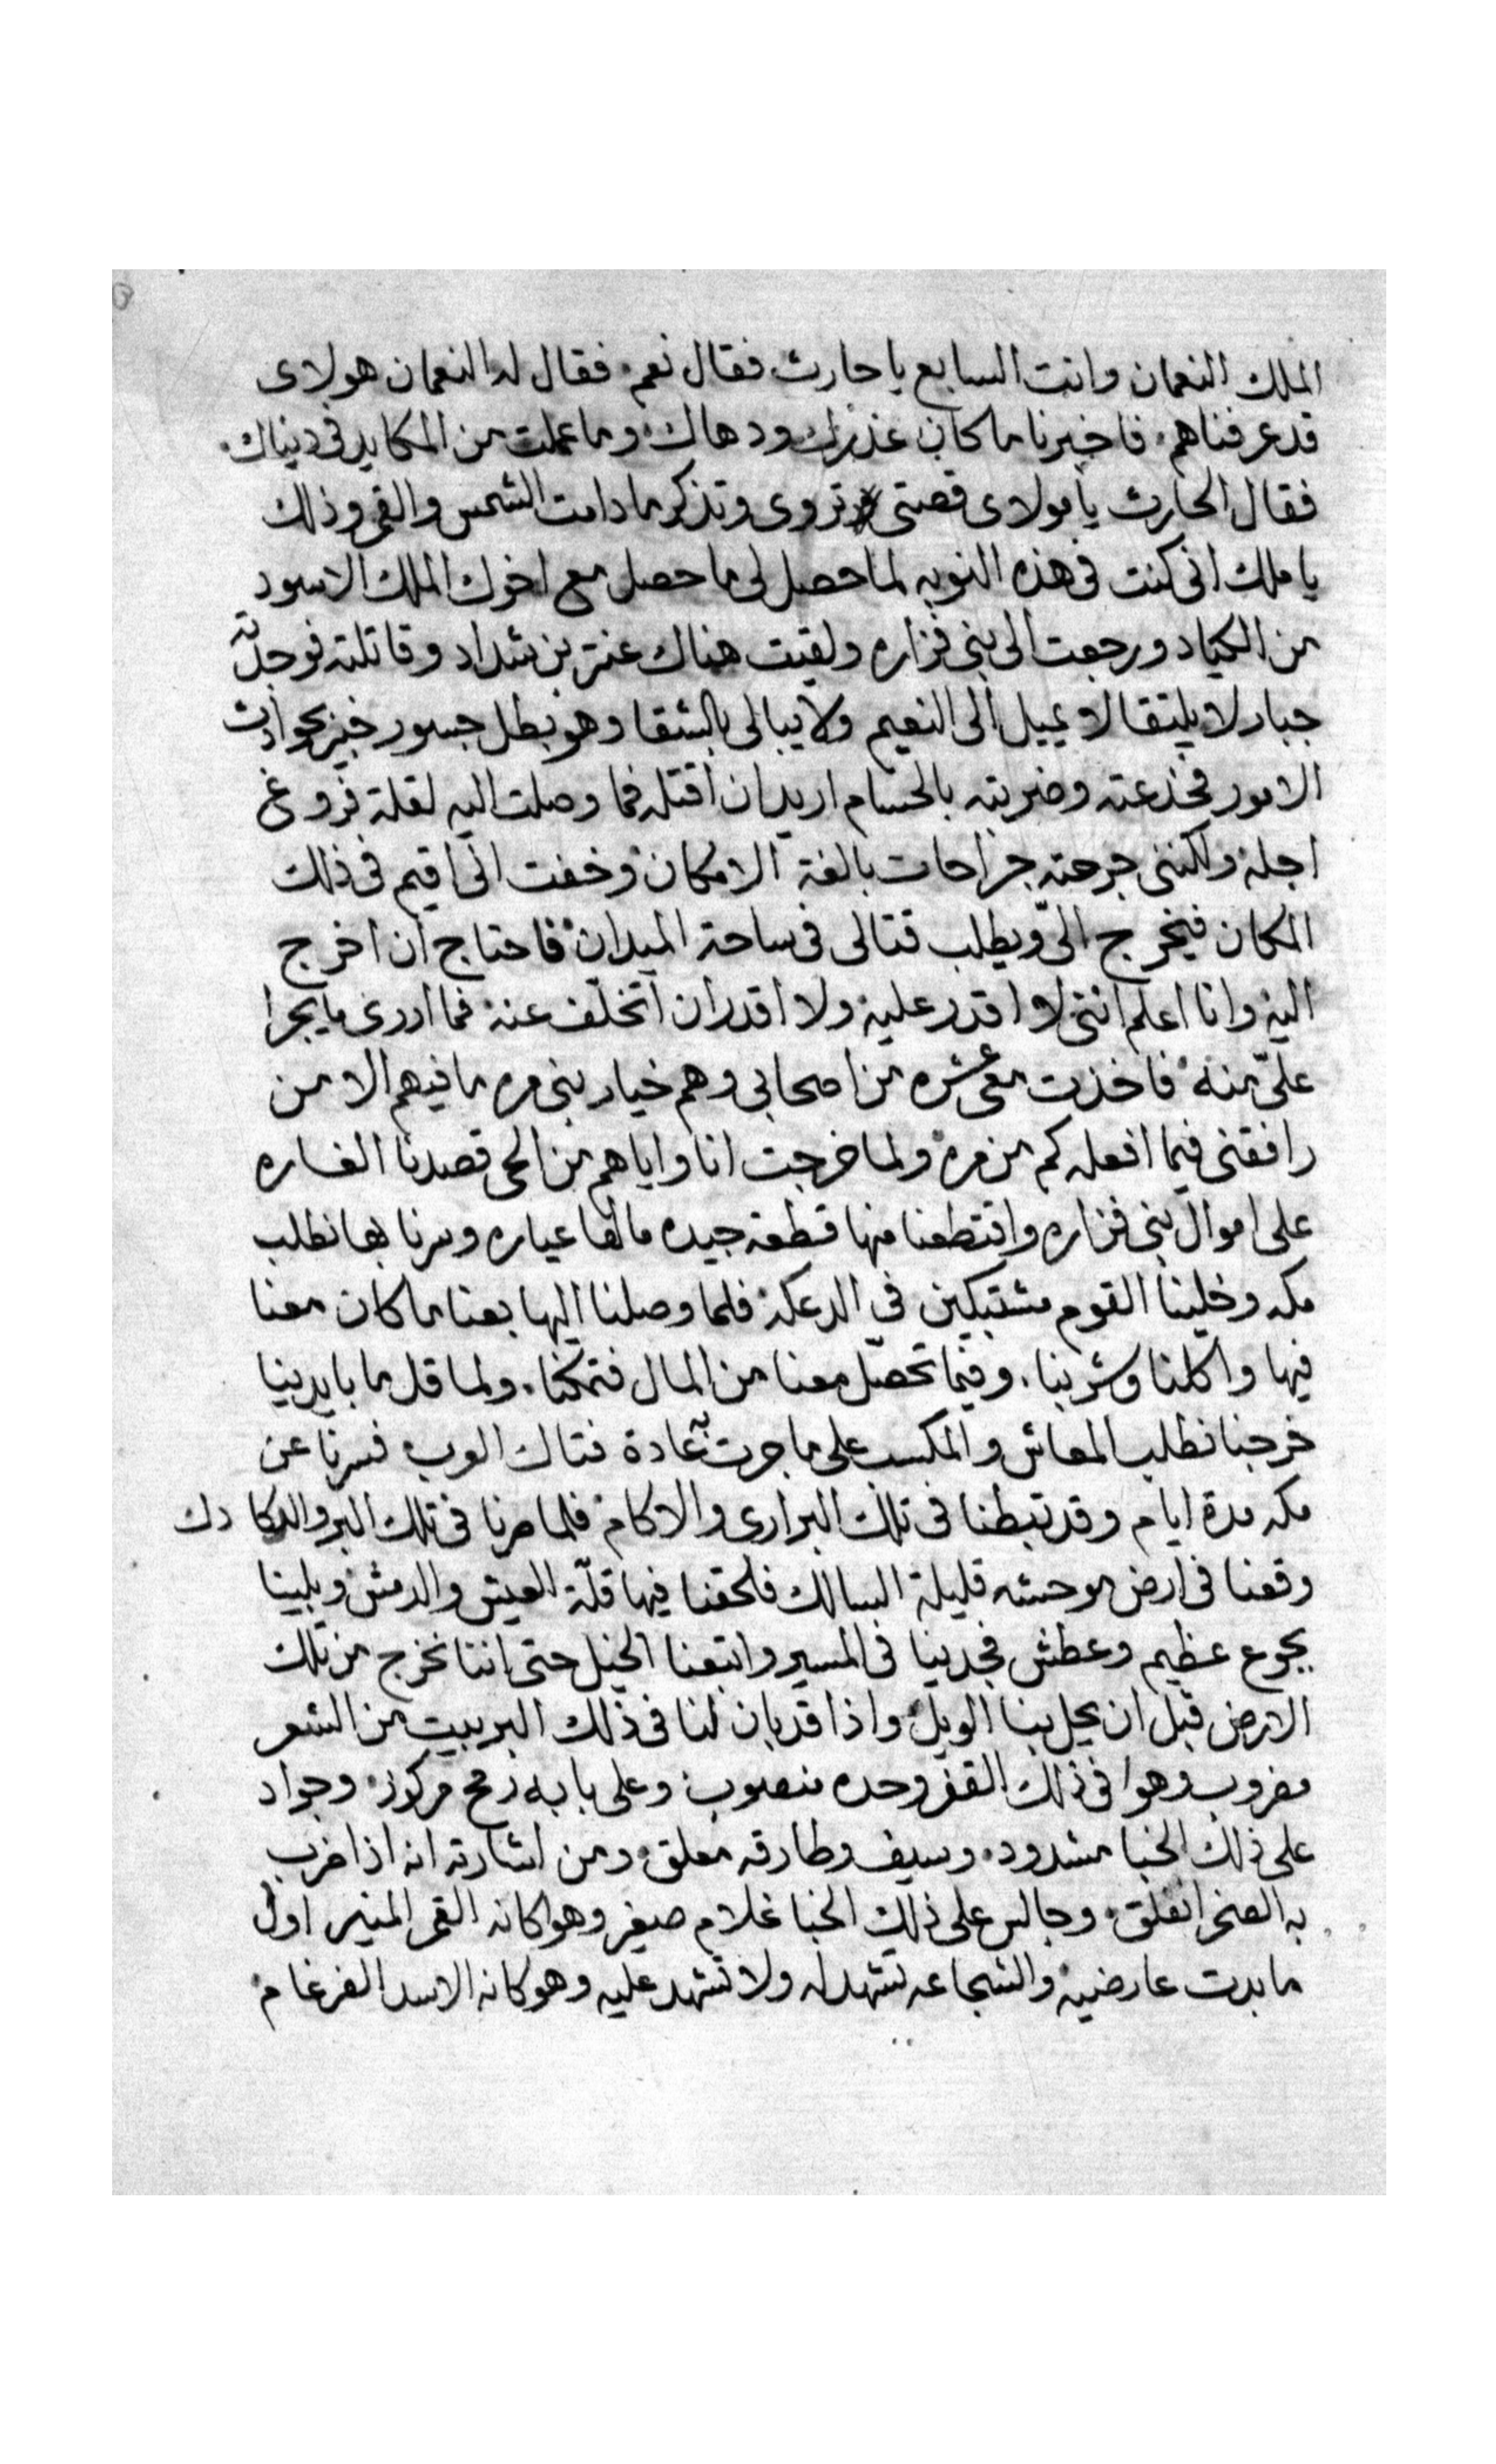 الملك النعمان وانت السابع يا حارث فقال نعم فقال له النعمان هولاى
قد عرفناهم فاخبرنا ما كان غذرك ودهاك وما عملت من المكايد فى دنياك
فقال الحارث يا مولاى قصتى تروى وتذكر ما دامت الشمس والقمر وذلك
يا ملك انى كنت فى هذه النوبه لما حصل لى ما حصل مع اخوك الملك الاسود
من الكياد ورجعت الى بنى فزاره ولقيت هناك عنتر بن شداد وقاتلته فوجدته
جبار لا يلتقا لا يميل الى النعيم ولا يبالى بالشقا وهو بطل جسور خبير بحوادث
الامور فخذعته وضربته بالحسام اريد ان اقتله فما وصلت اليه لقلة فروغ
اجله ولكننى جرحته جراحات بالغة الامكان وخفت انى اقيم فى ذلك
المكان فيخرج الىّ ويطلب قتالى فى ساحة الميدان فاحتاج ان اخرج
اليه وانا اعلم اننى لا اقدر عليه ولا اقدر ان اتخلّف عنه فما ادرى ما يجرا
علىّ منه فاخذت معى عشره من اصحابى وهم خيار بنى مره ما فيهم الا من
رافقنى فيما افعله كم من مره ولما خرجت انا واياهم من الحى قصدنا الغاره
على اموال بنى فزاره واقتطعنا منها قطعة جيده مالها عياره وسرنا بها نطلب
مكه وخلينا القوم مشتبكين فى الدعكة فلما وصلنا اليها بعنا ما كان معنا
فيها واكلنا وشربنا وفيما تحصّل معنا من المال فتمكنا ولما قل ما بايدينا
خرجنا نطلب المعاش والمكسب على ما جرت به عادة فتاك العرب فسرنا عن
مكه مدة ايام وقد تبطنا فى تلك البرارى والاكام فلما صرنا فى تلك البر والدكا دك
وقعنا فى ارض موحشه قليلة السالك فلحقنا فيها قلّة العيش والدمش وبلينا
بجوع عظيم وعطش فجدينا فى المسير واتبعنا الخيل حتى اننا نخرج من تلك
الارض قبل ان يحل بنا الويل واذا قد بان لنا فى ذلك البر بيت من الشعر
مضروب وهوا فى ذلك القفر وحده منصوب وعلى بابه رمح مركوز وجواد
على ذلك الخبا مشدود وسيف وطارقه معلق ومن اشارته انه اذا ضرب
به الصخر انفلق وجالس على ذلك الخبا غلام صغير وهو كانه القمر المنير اول
ما بدت عارضيه والشجاعه تشهد له ولا تشهد عليه وهو كانه الاسد الضرغام